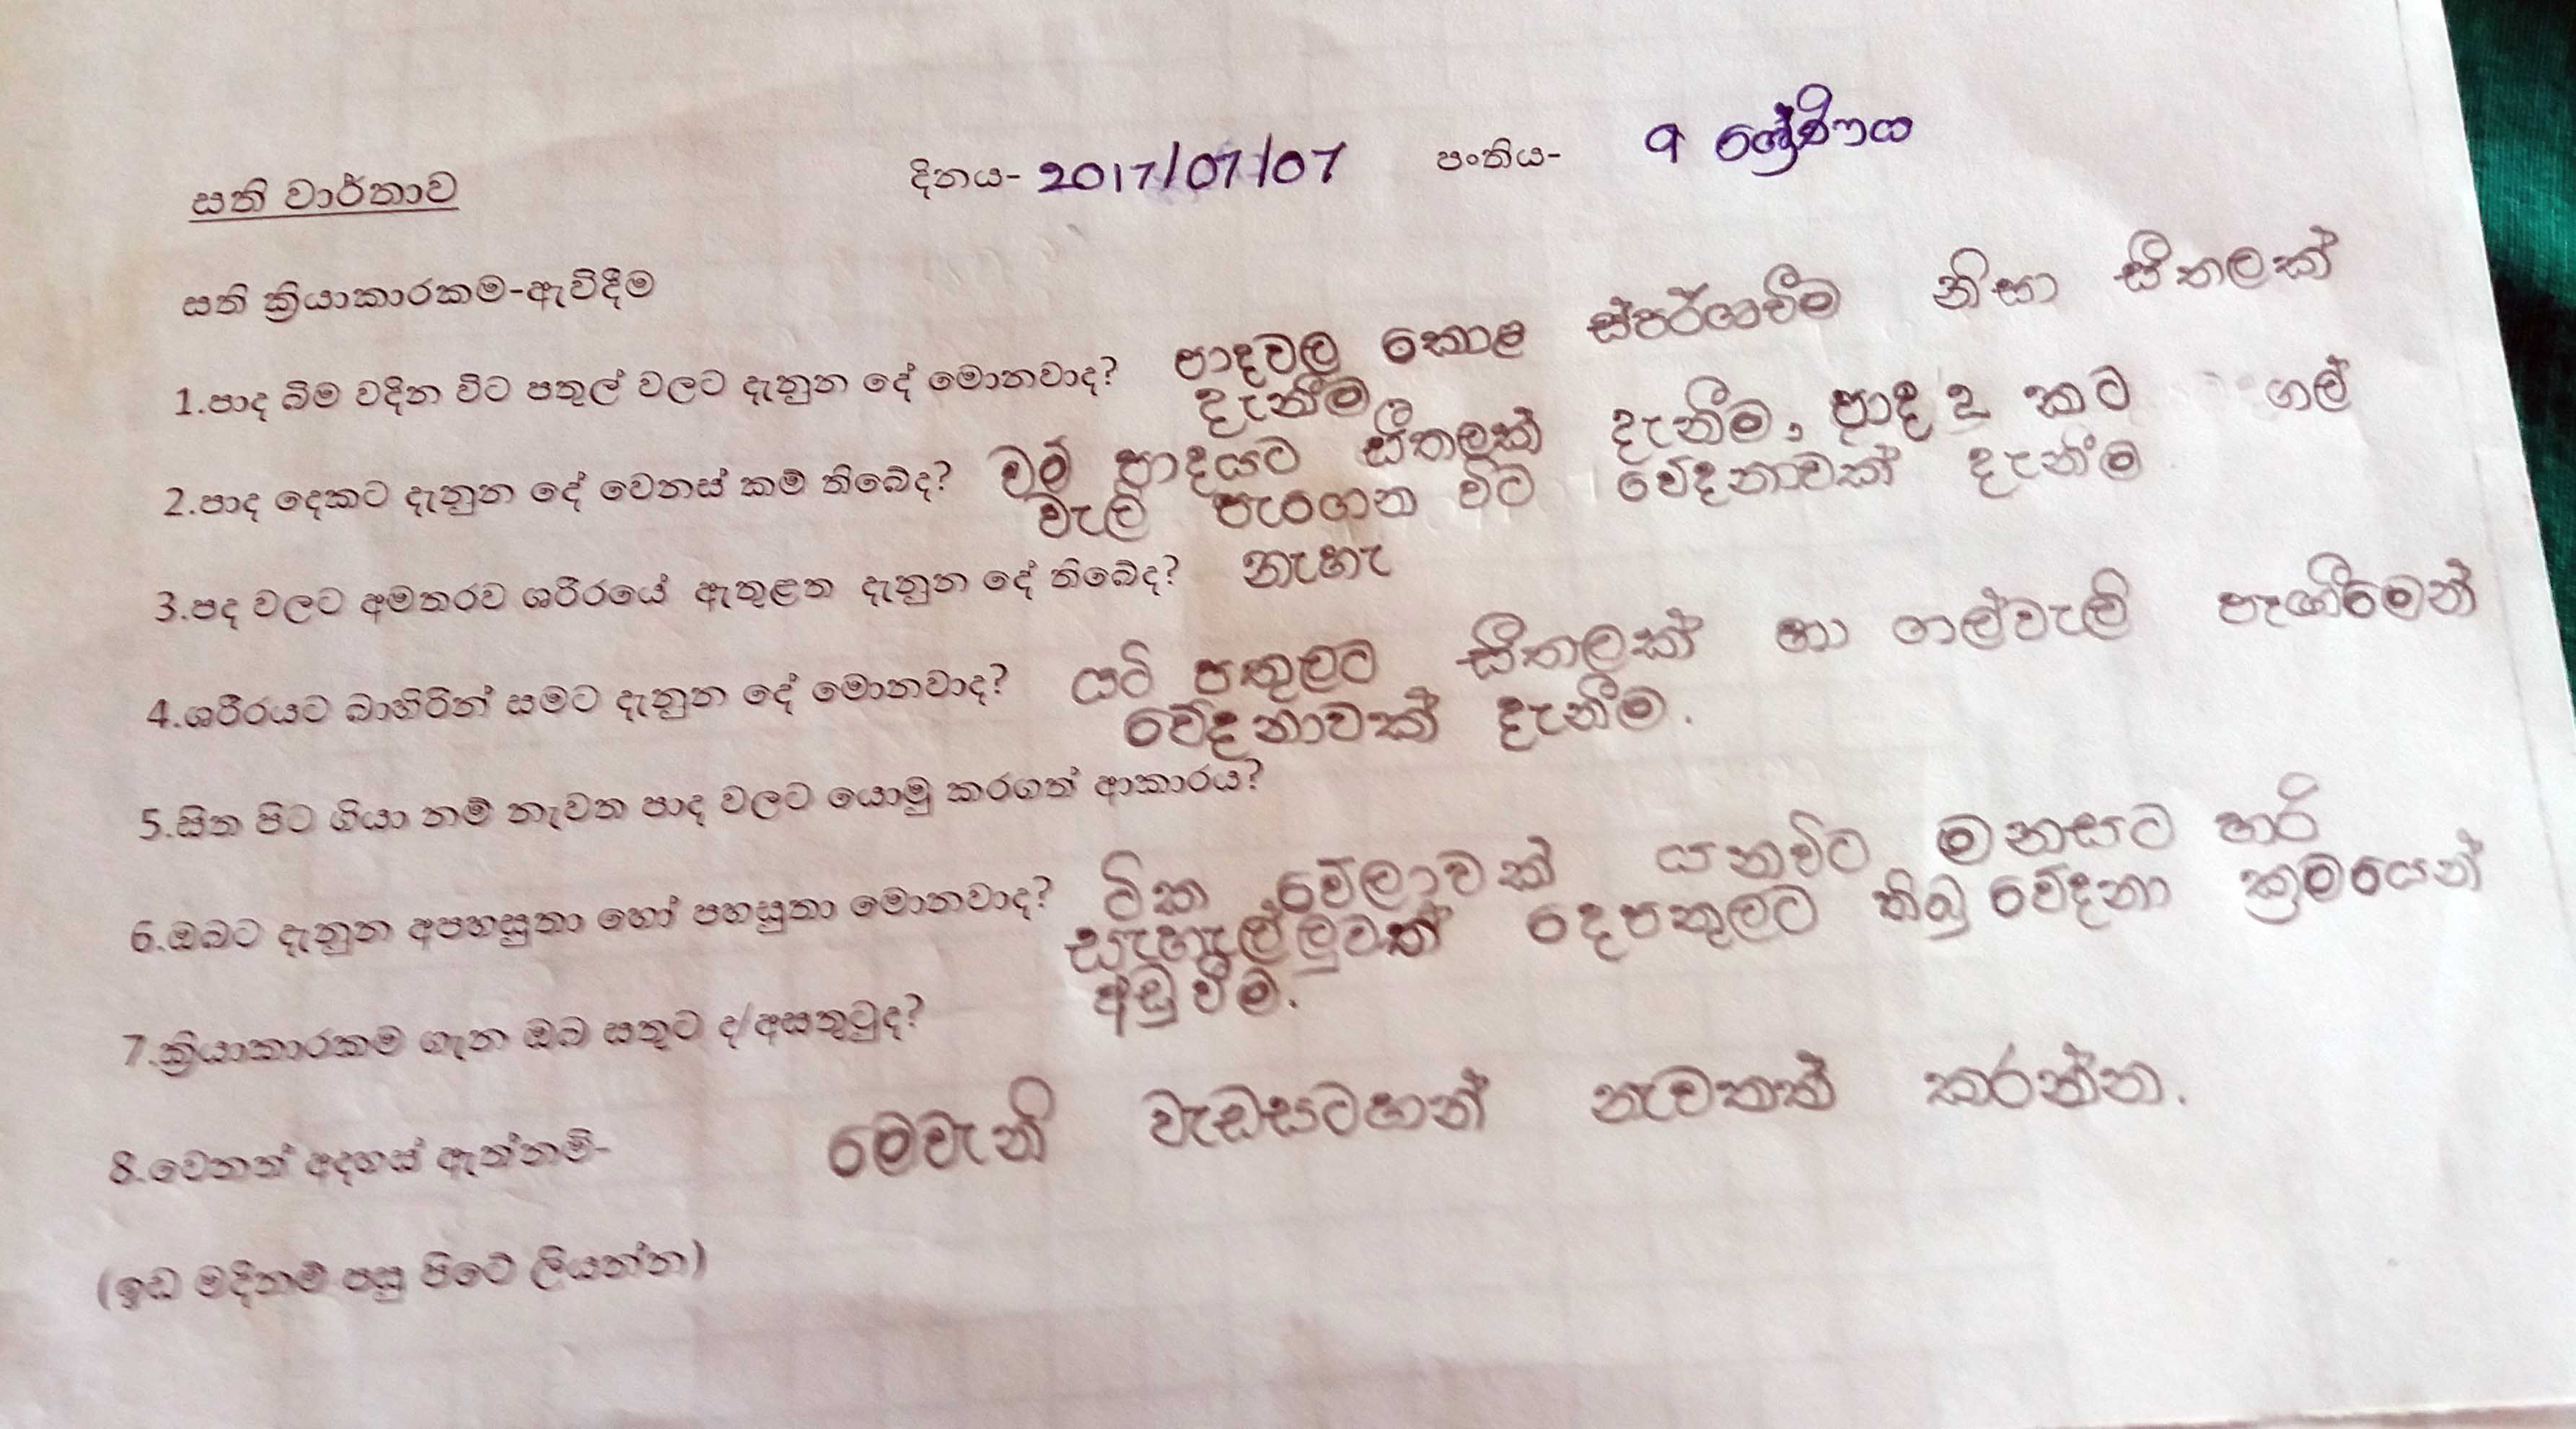 සති වාර්තාව දිනය- 2017/07/07 පංතිය- 9 ශ්‍රේණිය
සති ක්‍රියාකාරකම-ඇවිදීම
1.පාද බිම වදින විට පතුල් වලට දැනුන දේ මොනවාද? පාදවල කොළ ස්පර්ශවීම නිසා සීතලක්
දැනීම
2.පාද දෙකට දැනුන දේ වෙනස් කම් තිබේද? වම් පාදයට සීතලක් දැනීම, පාද 2 කට ගල්
වැලි පෑගෙන විට වේදනාවක් දැනීම
3.පද වලට අමතරව ශරීරයේ ඇතුළත දැනුන දේ තිබේද? නැහැ
4.ශරීරයට බාහිරින් සමට දැනුන දේ මොනවාද? යටි පතුලට සීතලක් හා ගල්වැලි පෑගීමෙන්
වේදනාවක් දැනීම.
5.සිත පිට ගියා නම් නැවත පාද වලට යොමු කරගත් ආකාරය?
6.ඔබට දැනුන අපහසුතා හෝ පහසුතා මොනවාද? ටික වේලාවක් යනවිට මනසට හරි
සැහැල්ලුවක් දෙපතුලට තිබු වේදනා ක්‍රමයෙන්
අඩුවීම.
7.ක්‍රියාකාරකම ගැන ඔබ සතුට ද/අසතුටුද?
8.වෙනත් අදහස් ඇත්නම්- මෙවැනි වැඩසටහන් නැවතත් කරන්න.
(ඉඩ මදිනම් පසු පිටේ ලියන්න)